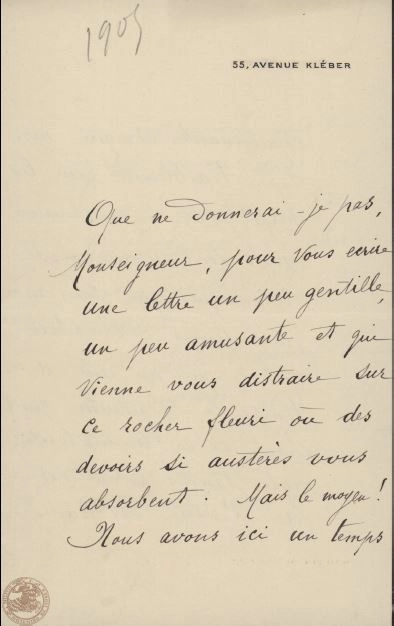 1905
55, AVENUE KLÉBER
Que ne donnerai-je pas,
Monseigneur, pour vous ecrire
une lettre un peu gentille,
un peu amusante et qui
vienne vous distraire sur
ce rocher fleuri où des
devoirs si austères vous
absorbent. Mais le moyen!
Nous avons ici un temps